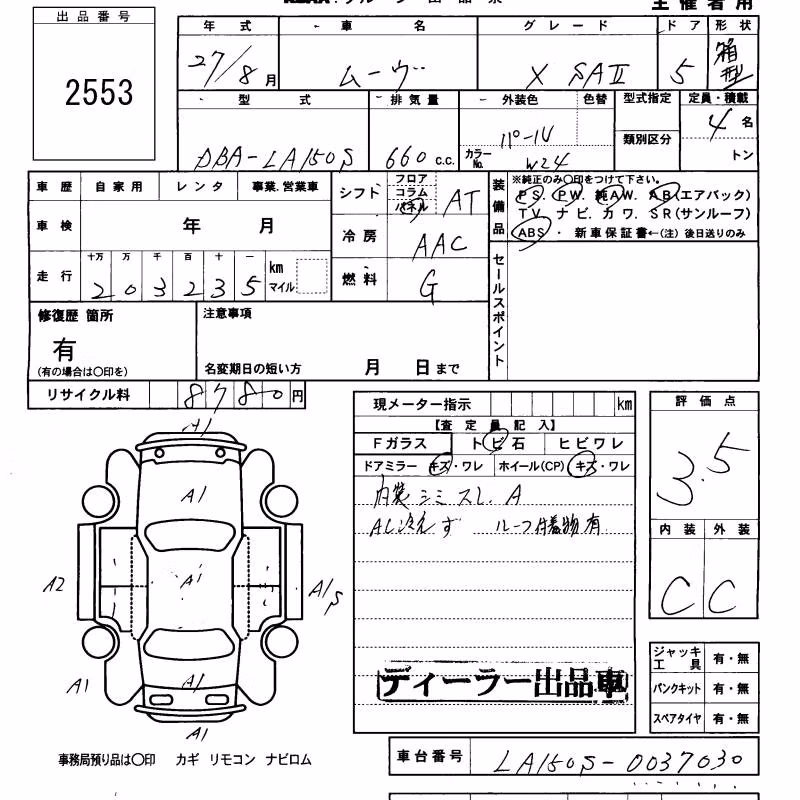 出品番号
2553
主催者用
年式 車名 グレード ドア 形状
27/8月 ムーヴ X SAⅡ 5 箱型
型式 排気量 外装色 色替 型式指定 定員・積載
DBA-LA150S 660 c.c. パール カラーNo. W24 類別区分 4名 トン
車歴 自家用 レンタ 事業.営業車
車検 年 月
走行 十万 万 千 百 十 一 km マイル
203235
シフト フロア コラム パネル AT
冷房 AAC
燃料 G
装備品 ※純正のみ〇印をつけて下さい。
PS. PW. 純AW. AB(エアバック)
TV. ナビ. カワ. SR(サンルーフ)
ABS ・ 新車保証書←(注) 後日送りのみ
セールスポイント
修復歴 箇所
有
(有の場合は〇印を)
注意事項
名変期日の短い方 月 日まで
リサイクル料 8780円
現メーター指示 km
【査定員記入】
Fガラス トビ石 ヒビワレ
ドアミラー キズ・ワレ ホイール(CP) キズ・ワレ
内装シミスレ.A
AC冷えず ルーフ付着物有
評価点
3.5
内装 外装
C C
A1
A1
A2 A1 A1s
A1 A1
A1
ディーラー出品車
ジャッキ工具 有・無
パンクキット 有・無
スペアタイヤ 有・無
事務局預り品は〇印 カギ リモコン ナビロム
車台番号 LA150S-0037030